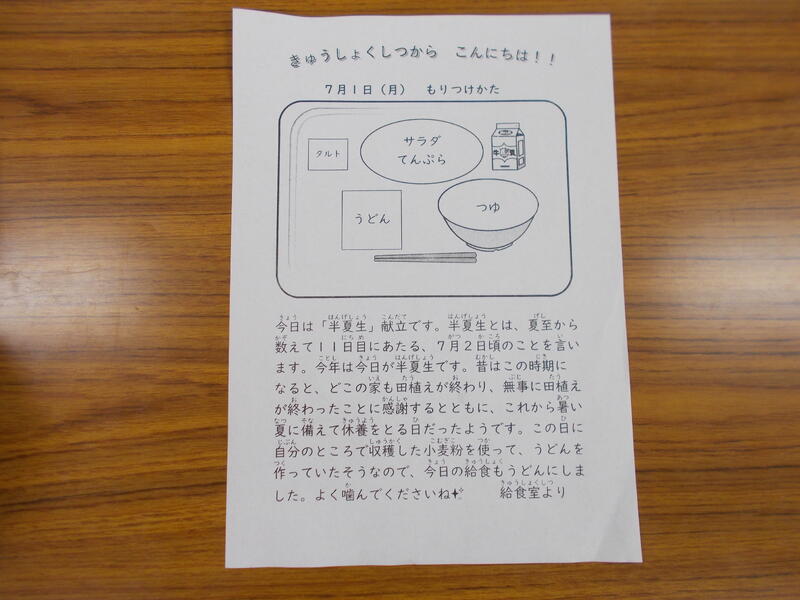 きゅうしょくしつから　こんにちは！！
７月１日（月）　もりつけかた
タルト
サラダ
てんぷら
牛乳
うどん
つゆ
今日は「半夏生」献立です。半夏生とは、夏至から
数えて１１日目にあたる、７月２日頃のことを言い
ます。今年は今日が半夏生です。昔はこの時期に
なると、どこの家も田植えが終わり、無事に田植え
が終わったことに感謝するとともに、これから暑い
夏に備えて休養をとる日だったようです。この日に
自分のところで収穫した小麦粉を使って、うどんを
作っていたそうなので、今日の給食もうどんにしま
した。よく噛んでくださいね
給食室より